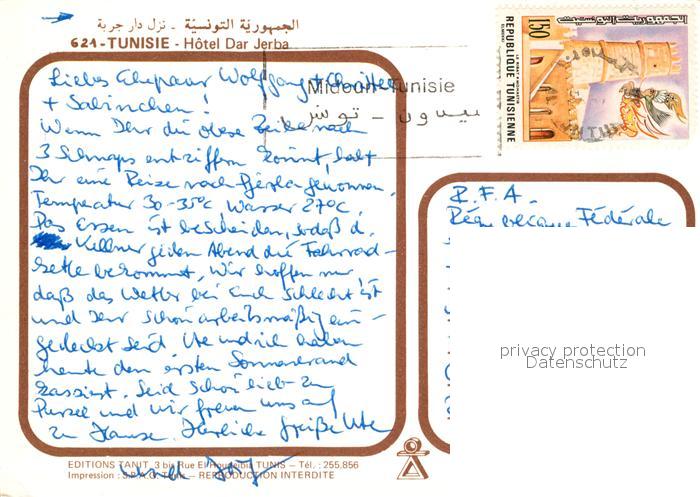 الجمهورية التونسية - نزل دار جربة
621-TUNISIE - Hôtel Dar Jerba
Liebes Ehepaar Wolfgang +
+ Sabinchen!
Wenn Ihr diese Zeilen nach
3 Schnaps entziffern könnt, habt
Ihr eine Reise nach Djerba gewonnen.
Temperatur 30-35°C Wasser 27°C.
Das Essen ist bescheiden, sodaß d.
Kellner jeden Abend die Fahrrad-
kette bekommt. Wir hoffen nur
daß das Wetter bei Euch schlecht ist
und Ihr schon arbeitsmäßig ein-
gedeckt seid. Ute und ich haben
heute den ersten Sonnenbrand
kassiert. Seid schön lieb zu
Purzel und wir freuen uns auf
zu Hause. Herzliche Grüße Ute
und
Midoun Tunisie
ميدون - تونس
الجمهورية التونسية
150
REPUBLIQUE TUNISIENNE
R.F.A.
République Fédérale
privacy protection
Datenschutz
EDITIONS TANIT 3 bis Rue El Houdeibia TUNIS - Tél. : 255.856
Impression : S.P.A.G. Tunis - REPRODUCTION INTERDITE